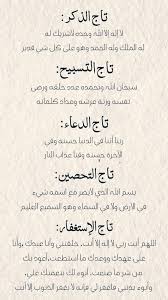 تاج الذكر:
لا إله إلا الله وحده لاشريك له
له الملك وله الحمد وهو على كل شئ قدير
تاج التسبيح:
سبحان الله وبحمده عدد خلقه ورضى
نفسه وزنة عرشه ومداد كلماته
تاج الدعاء:
ربنا آتنا في الدنيا حسنة وفي
الآخرة حسنة وقنا عذاب النار
تاج التحصين:
بسم الله الذي لايضر مع اسمه شيء
في الارض ولا في السماء وهو السميع العليم
تاج الإستغفار:
اللهم أنت ربي لا إله إلا أنت، خلقتني وأنا عبدك ,وأنا
على عهدك ووعدك ما استطعت,أعوذ بك
من شر ما صنعت، أبوء لك بنعمتك علي,
وأبوء بذنبي فاغفر لي فإنه لا يغفر الذنوب إلا أنت